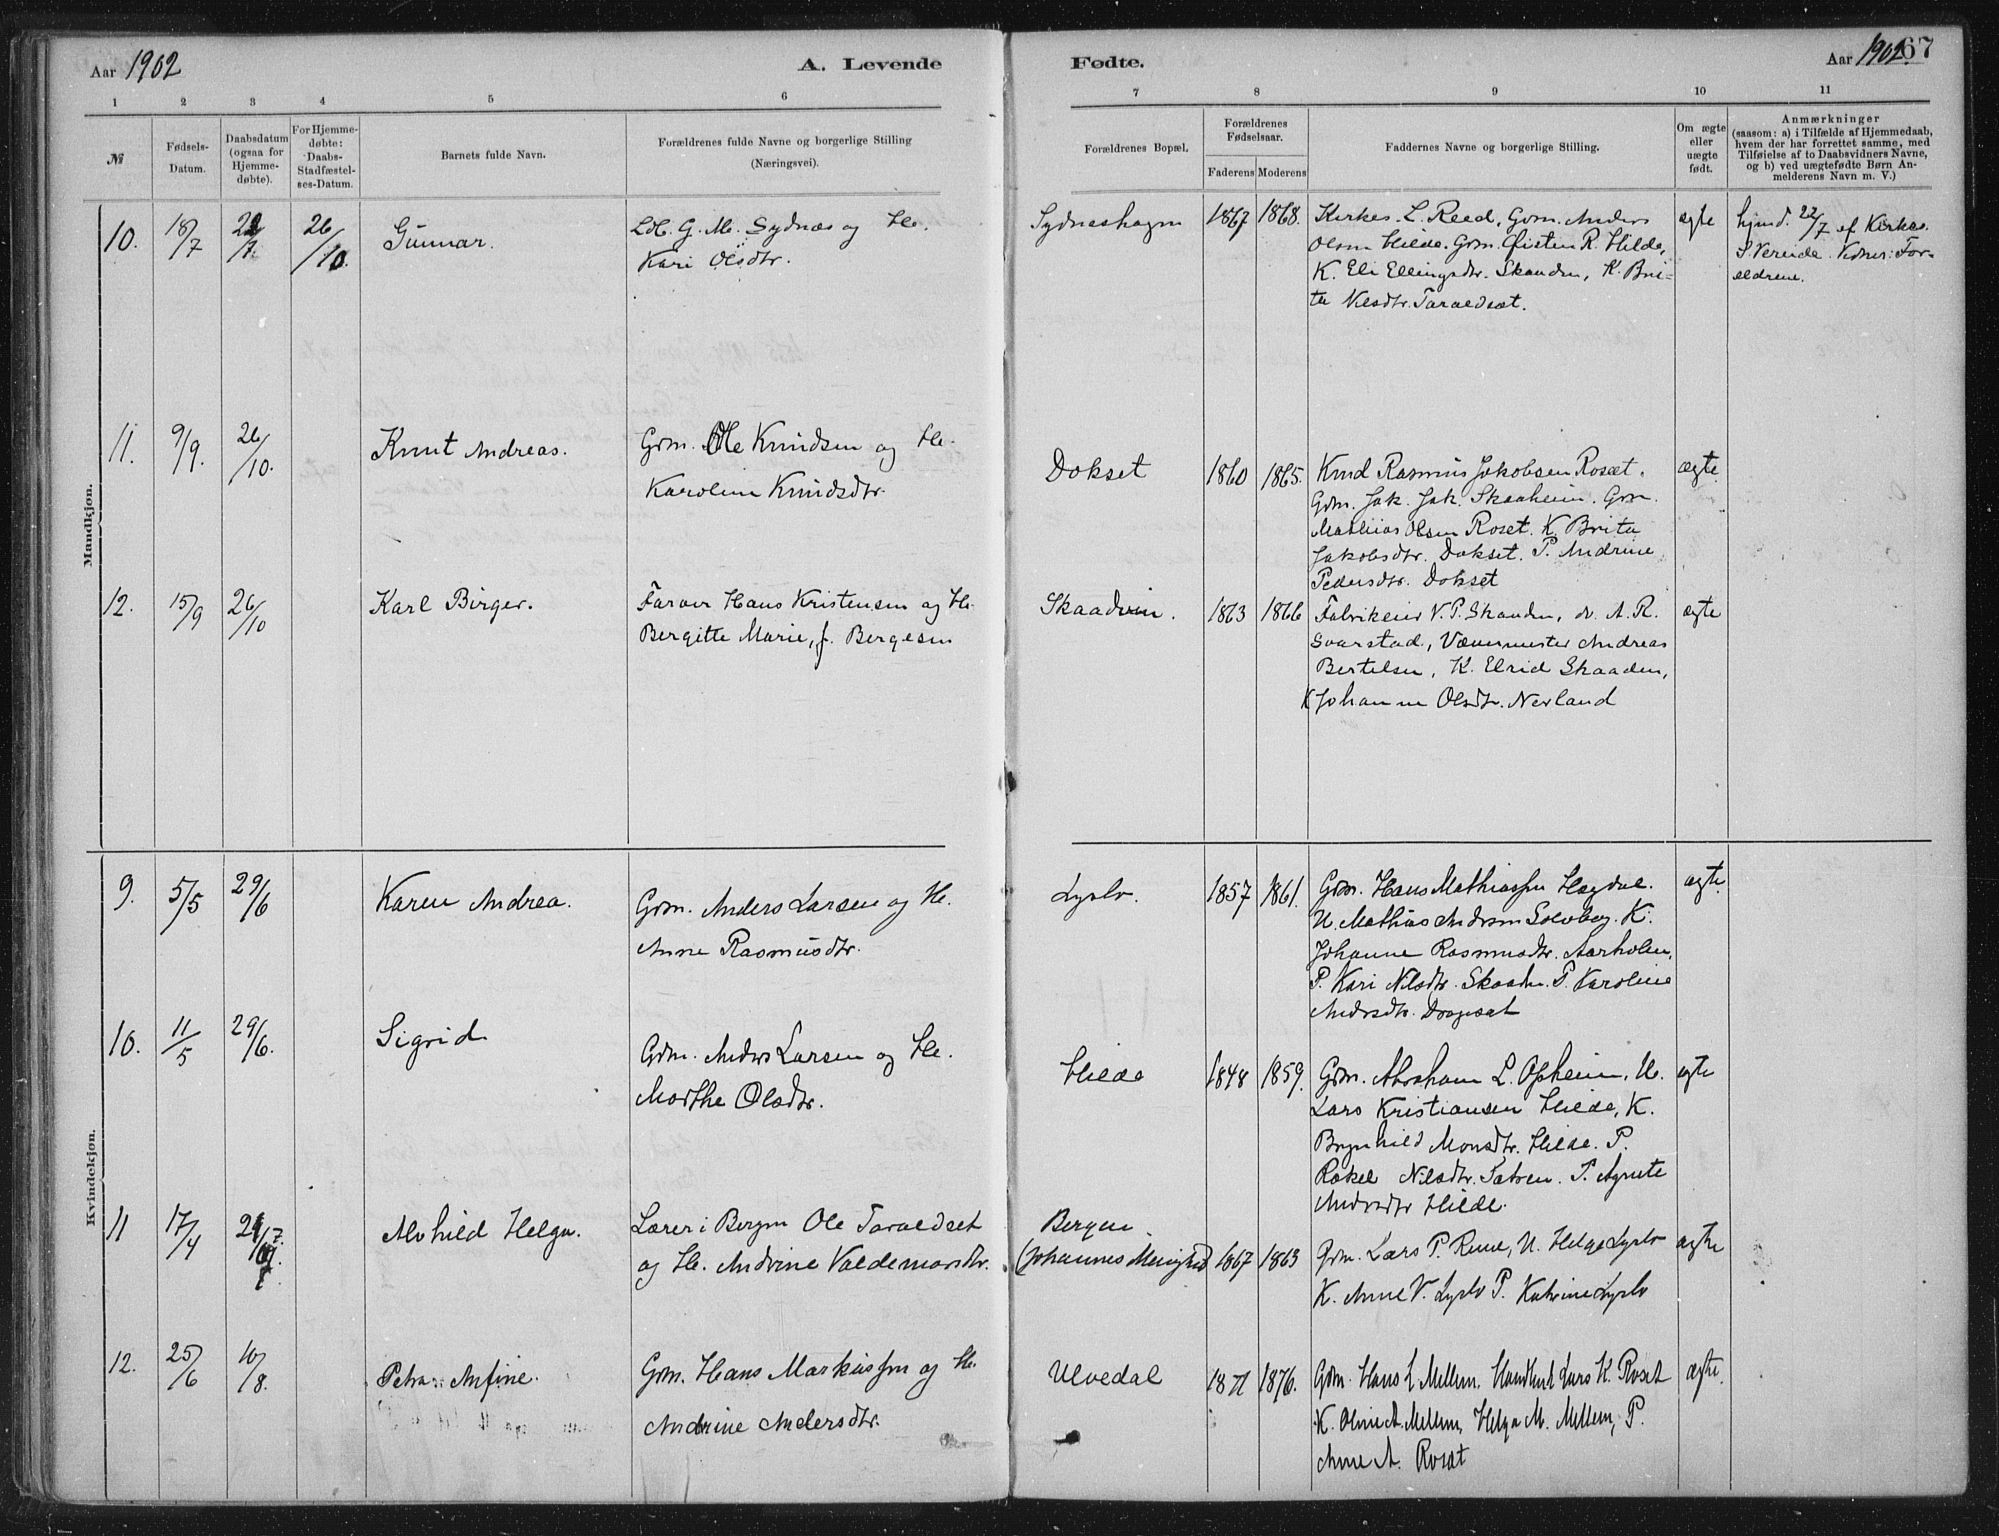 Aar 1902
A. Levende
Fødte.
Aar 1902.
67
1 2 3 4 5 6 7 8 9 10 11
№
Fødsels-
Datum.
Daabsdatum
(ogsaa for
Hjemme-
døbte).
For Hjemme-
døbte:
Daabs-
Stadfæstel-
ses-Datum.
Barnets fulde Navn.
Forældrenes fulde Navne og borgerlige Stilling
(Næringsvei).
Forældrenes Bopæl.
Forældrenes
Fødselsaar.
Faderens Moderens
Faddernes Navne og borgerlige Stilling.
Om ægte
eller
uægte
født.
Anmærkninger
(saasom: a) i Tilfælde af Hjemmedaab,
hvem der har forrettet samme, med
Tilføielse af to Daabsvidners Navne,
og b) ved uægtefødte Børn An-
melderens Navn m. V.)
Mandkjøn.
10. 18/7 22/7. 26/10. Gunnar.
G. M. Sydnæs og H.
Kari Olsdtr.
Sydneshagen 1867 1868.
Kirkes. L. Reed, Gbm. Anders
Olsen Hilde. Gbm. Øisten R. Hilde,
K. Eli Ellingsdtr. Skaaden, K. Bri-
ta Nilsdtr. Taraldset.
ægte
hjmd. 22/7 af Kirkes.
S. Vereide. Vidner: For-
eldrene.
11. 9/9. 26/10. Knut Andreas.
Gbm. Ole Knudsen og H.
Karoline Knudsdtr.
Dokset 1860 1865.
Knud Rasmus Jakobsen Roset.
Gbm. Jak. Jak. Skaaheim. Gbm.
Mathias Olsen Roset. K. Brita
Jakobsdtr. Dokset. P. Andrine
Pedersdtr. Dokset
ægte.
12. 15/9 26/10 Karl Birger.
Farver Hans Kristensen og H.
Bergitte Marie, f. Bergesen
1863 1866
Fabrikeier N. P. Skaaden, A. R.
Svarstad, Vævermester Andreas
Bertelsen, K. Elrid Skaaden,
K Johanne Olsdtr. Nerland
ægte
Kvindekjøn.
9. 5/5 29/6 Karen Andrea.
Gbm. Anders Larsen og H.
Anne Rasmusdtr.
Lyslo. 1857 1861.
Gbm. Hans Mathiassen Hagdal.
U. Mathias Andersen Solvberg. K.
Johanne Rasmusdtr. Aarholen,
P. Kari Nilsdtr. Skaaden. P. Karoline
Andrsdtr. Drageset
ægte.
10. 11/5 29/6. Sigrid
Gbm. Anders Larsen og H.
Marthe Olsdtr.
Hilde 1848 1859.
Gbm. Abraham L. Opheim, U.
Lars Kristiansen Hilde, K.
Brynhild Monsdtr. Hilde. P.
Rakel Nilsdtr. Sætren. P. Agnete
Andrsdtr Hilde.
ægte
11 17/4 Alvhild Helga.
Lærer i Bergen Ole Taraldset
og H. Andrine Valdemarsdtr.
Bergen
(Johannes Menighed) 1867 1863
Gbm. Lars P. Rune, U. Helge Lyslo
K. Anne V. Lyslo P. Katrine Lyslo
ægte
12. 25/6 10/8. Petra Anfine.
Gbm. Hans Markussen og H.
Andrine Andersdtr.
Ulvedal 1871 1876.
Gbm. Hans L Mellem. Lars K. Roset
K. Oline A. Mellem, Helga M. Mellem, P.
Anne A. Roset
ægte.